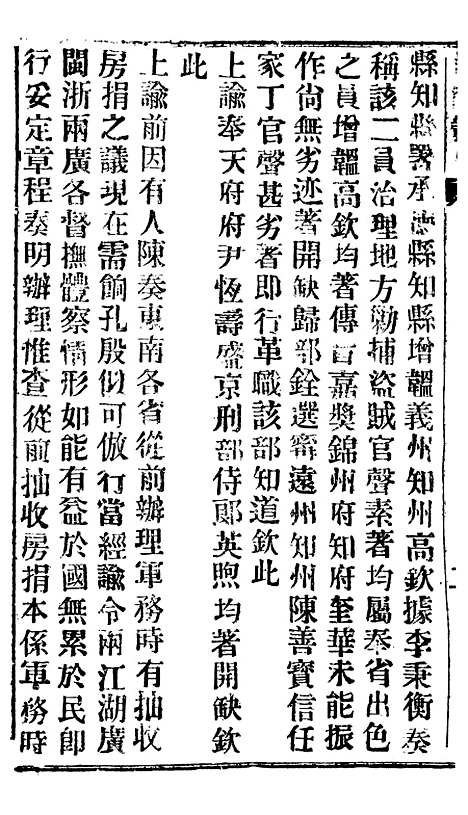 縣知縣署承德縣知縣增韞義州知州高欽據李秉衡奏
稱該二員治理地方勤捕盜賊官聲素著均屬奉省出色
之員增韞高欽均著傳旨嘉獎錦州府知府奎華未能振
作尙無劣迹著開缺歸部銓選甯遠州知州陳善寶信任
家丁官聲甚劣著卽行革職該部知道欽此
上諭奉天府府尹恆壽盛京刑部侍郞英煦均著開缺欽
此
上諭前因有人陳奏東南各省從前辦理軍務時有抽收
房捐之議現在需餉孔殷似可倣行當經諭令兩江湖廣
閩浙兩廣各督撫體察情形如能有益於國無累於民卽
行妥定章程奏明辦理惟查從前抽收房捐本係軍務時